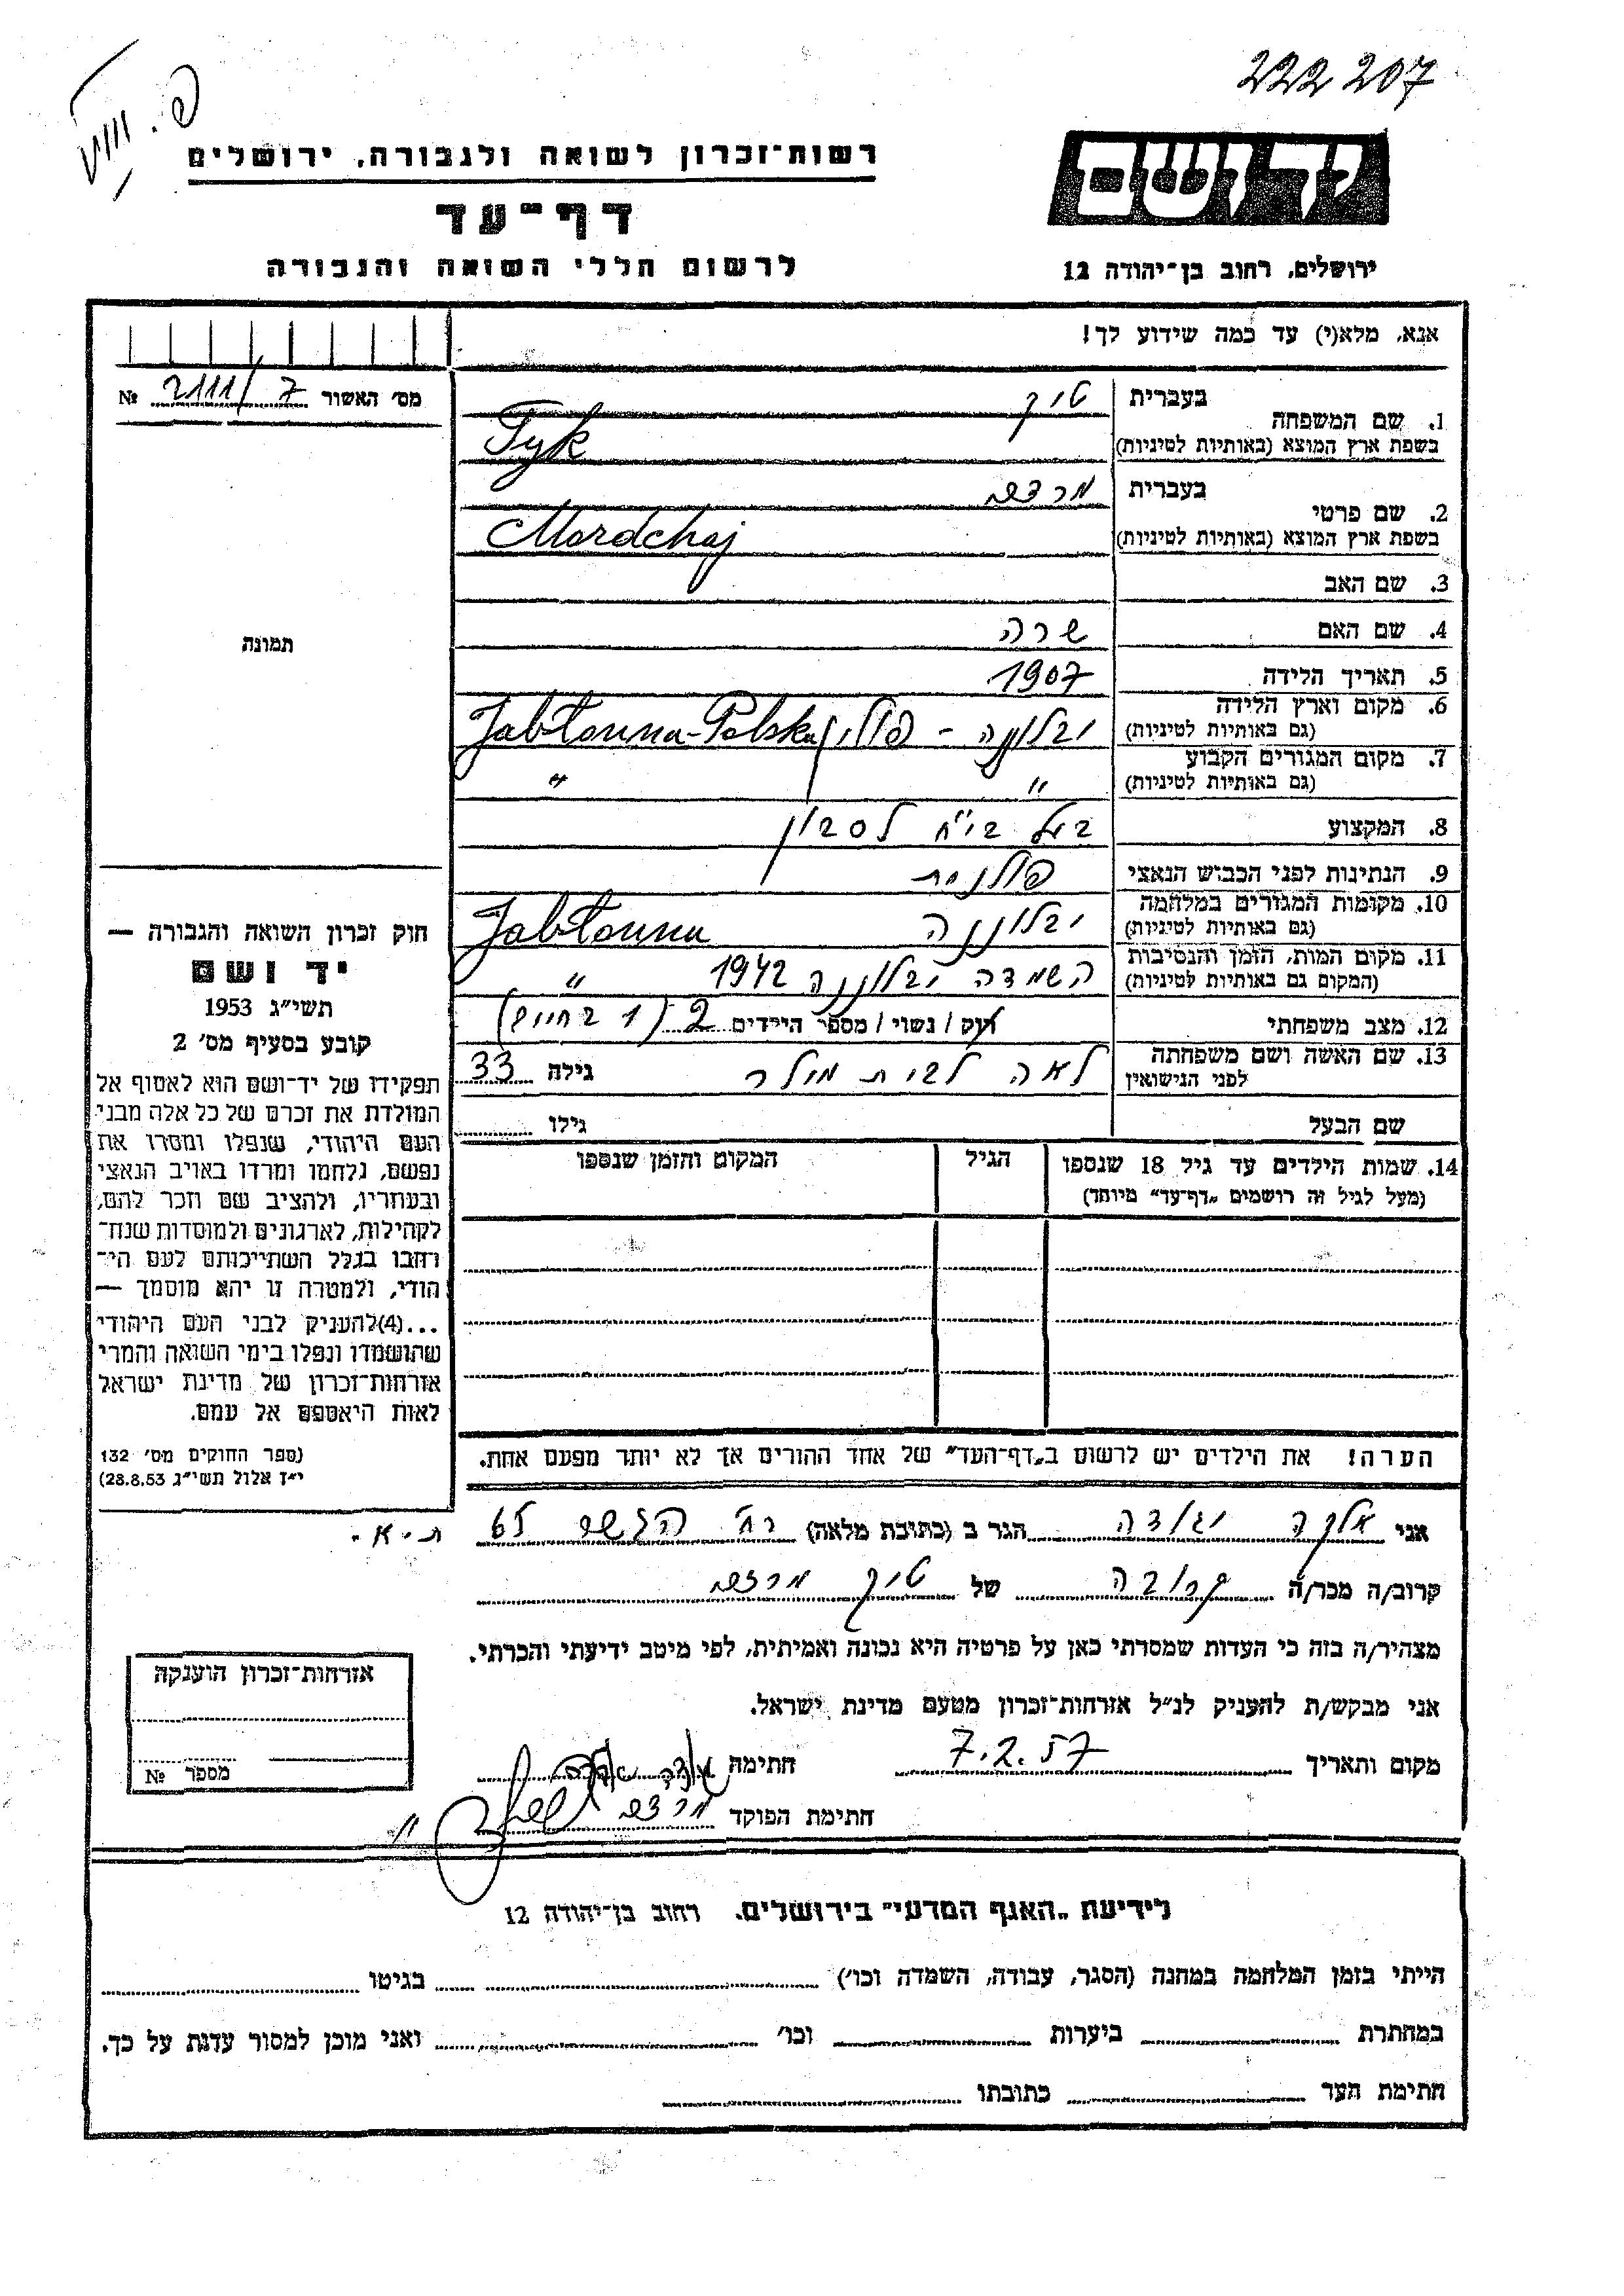 222 207
רשות־זכרון לשואה ולגבורה, ירושלים
יד ושם
דף־עד
לרשום חללי השואה והגבורה
ירושלים, רחוב בן־יהודה 12
אנא, מלא(י) עד כמה שידוע לך!
מס׳ האשור 2111/7 №
1. שם המשפחה
בעברית טיק
בשפת ארץ המוצא (באותיות לטיניות) Tyk
2. שם פרטי
בעברית מרדכי
בשפת ארץ המוצא (באותיות לטיניות) Mordchaj
3. שם האב
4. שם האם שרה
5. תאריך הלידה 1907
6. מקום וארץ הלידה
(גם באותיות לטיניות) יבלונה - פולין Jabłonna-Polska
7. מקום המגורים הקבוע
(גם באותיות לטיניות) " "
8. המקצוע בעל בי"ח לסבון
9. הנתינות לפני הכבוש הנאצי פולנית
10. מקומות המגורים במלחמה
(גם באותיות לטיניות) יבלוננה Jabłonna
11. מקום המות, הזמן והנסיבות
(המקום גם באותיות לטיניות) השמדה יבלוננה 1942 "
12. מצב משפחתי רוק / נשוי / מספר הילדים 2 (1 בחיים)
13. שם האשה ושם משפחתה
לפני הנישואין לאה לבית מילר גילה 33
שם הבעל גילו
14. שמות הילדים עד גיל 18 שנספו
(מעל לגיל זה רושמים „דף־עד” מיוחד)
הגיל
המקום והזמן שנספו
הערה! את הילדים יש לרשום ב„דף־העד” של אחד ההורים אך לא יותר מפעם אחת.
תמונה
חוק זכרון השואה והגבורה —
יד ושם
תשי״ג 1953
קובע בסעיף מס׳ 2
תפקידו של יד־ושם הוא לאסוף אל
המולדת את זכרם של כל אלה מבני
העם היהודי, שנפלו ומסרו את
נפשם, נלחמו ומרדו באויב הנאצי
ובעוזריו, ולהציב שם וזכר להם,
לקהילות, לארגונים ולמוסדות שנח־
רבו בגלל השתייכותם לעם הי־
הודי, ולמטרה זו יהא מוסמך —
...(4)להעניק לבני העם היהודי
שהושמדו ונפלו בימי השואה והמרי
אזרחות־זכרון של מדינת ישראל
לאות היאספם אל עמם.
(ספר החוקים מס׳ 132
י״ז אלול תשי״ג 28.8.53)
אני אלקה הגר ב (כתובת מלאה) רח' 65 ת-א.
קרוב/ה מכר/ה קרובה של טיק מרדכי
מצהיר/ה בזה כי העדות שמסרתי כאן על פרטיה היא נכונה ואמיתית, לפי מיטב ידיעתי והכרתי.
אני מבקש/ת להעניק לנ״ל אזרחות־זכרון מטעם מדינת ישראל.
מקום ותאריך 7.2.57 חתימה
חתימת הפוקד מרדכי
אזרחות־זכרון הוענקה
מספר №
לידיעת „האגף המדעי” בירושלים, רחוב בן־יהודה 12
הייתי בזמן המלחמה במחנה (הסגר, עבודה, השמדה וכו׳) בגיטו
במחתרת ביערות וכו׳ ואני מוכן למסור עדות על כך.
חתימת העד כתובתו